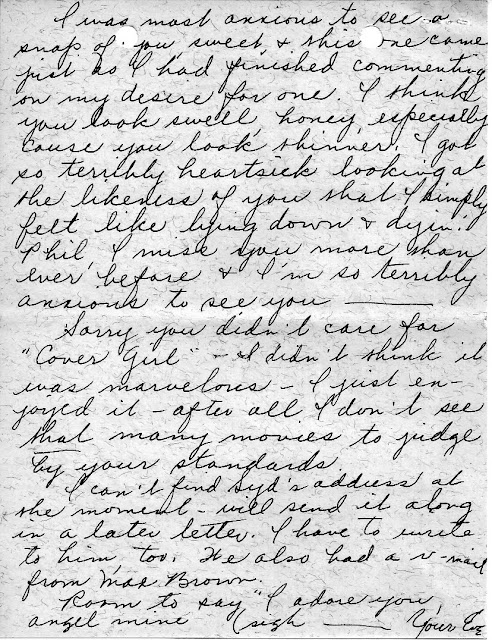 I was most anxious to see a
snap of you sweet, & this one came
just as I had finished commenting
on my desire for one. I think
you look swell, honey, especially
'cause you look thinner. I got
so terribly heartsick looking at
the likeness of you that I simply
felt like lying down & dyin'!
Phil, I miss you more than
ever before & I'm so terribly
anxious to see you ———
Sorry you didn't care for
"Cover Girl" - I didn't think it
was marvelous - I just en-
joyed it - after all I don't see
that many movies to judge
by your standards.
I can't find Syd's address at
the moment - will send it along
in a later letter. I have to write
to him, too. We also had a v-mail
from Mae Brown.
Room to say "I adore you,
angel mine (sigh ——— Your Eve